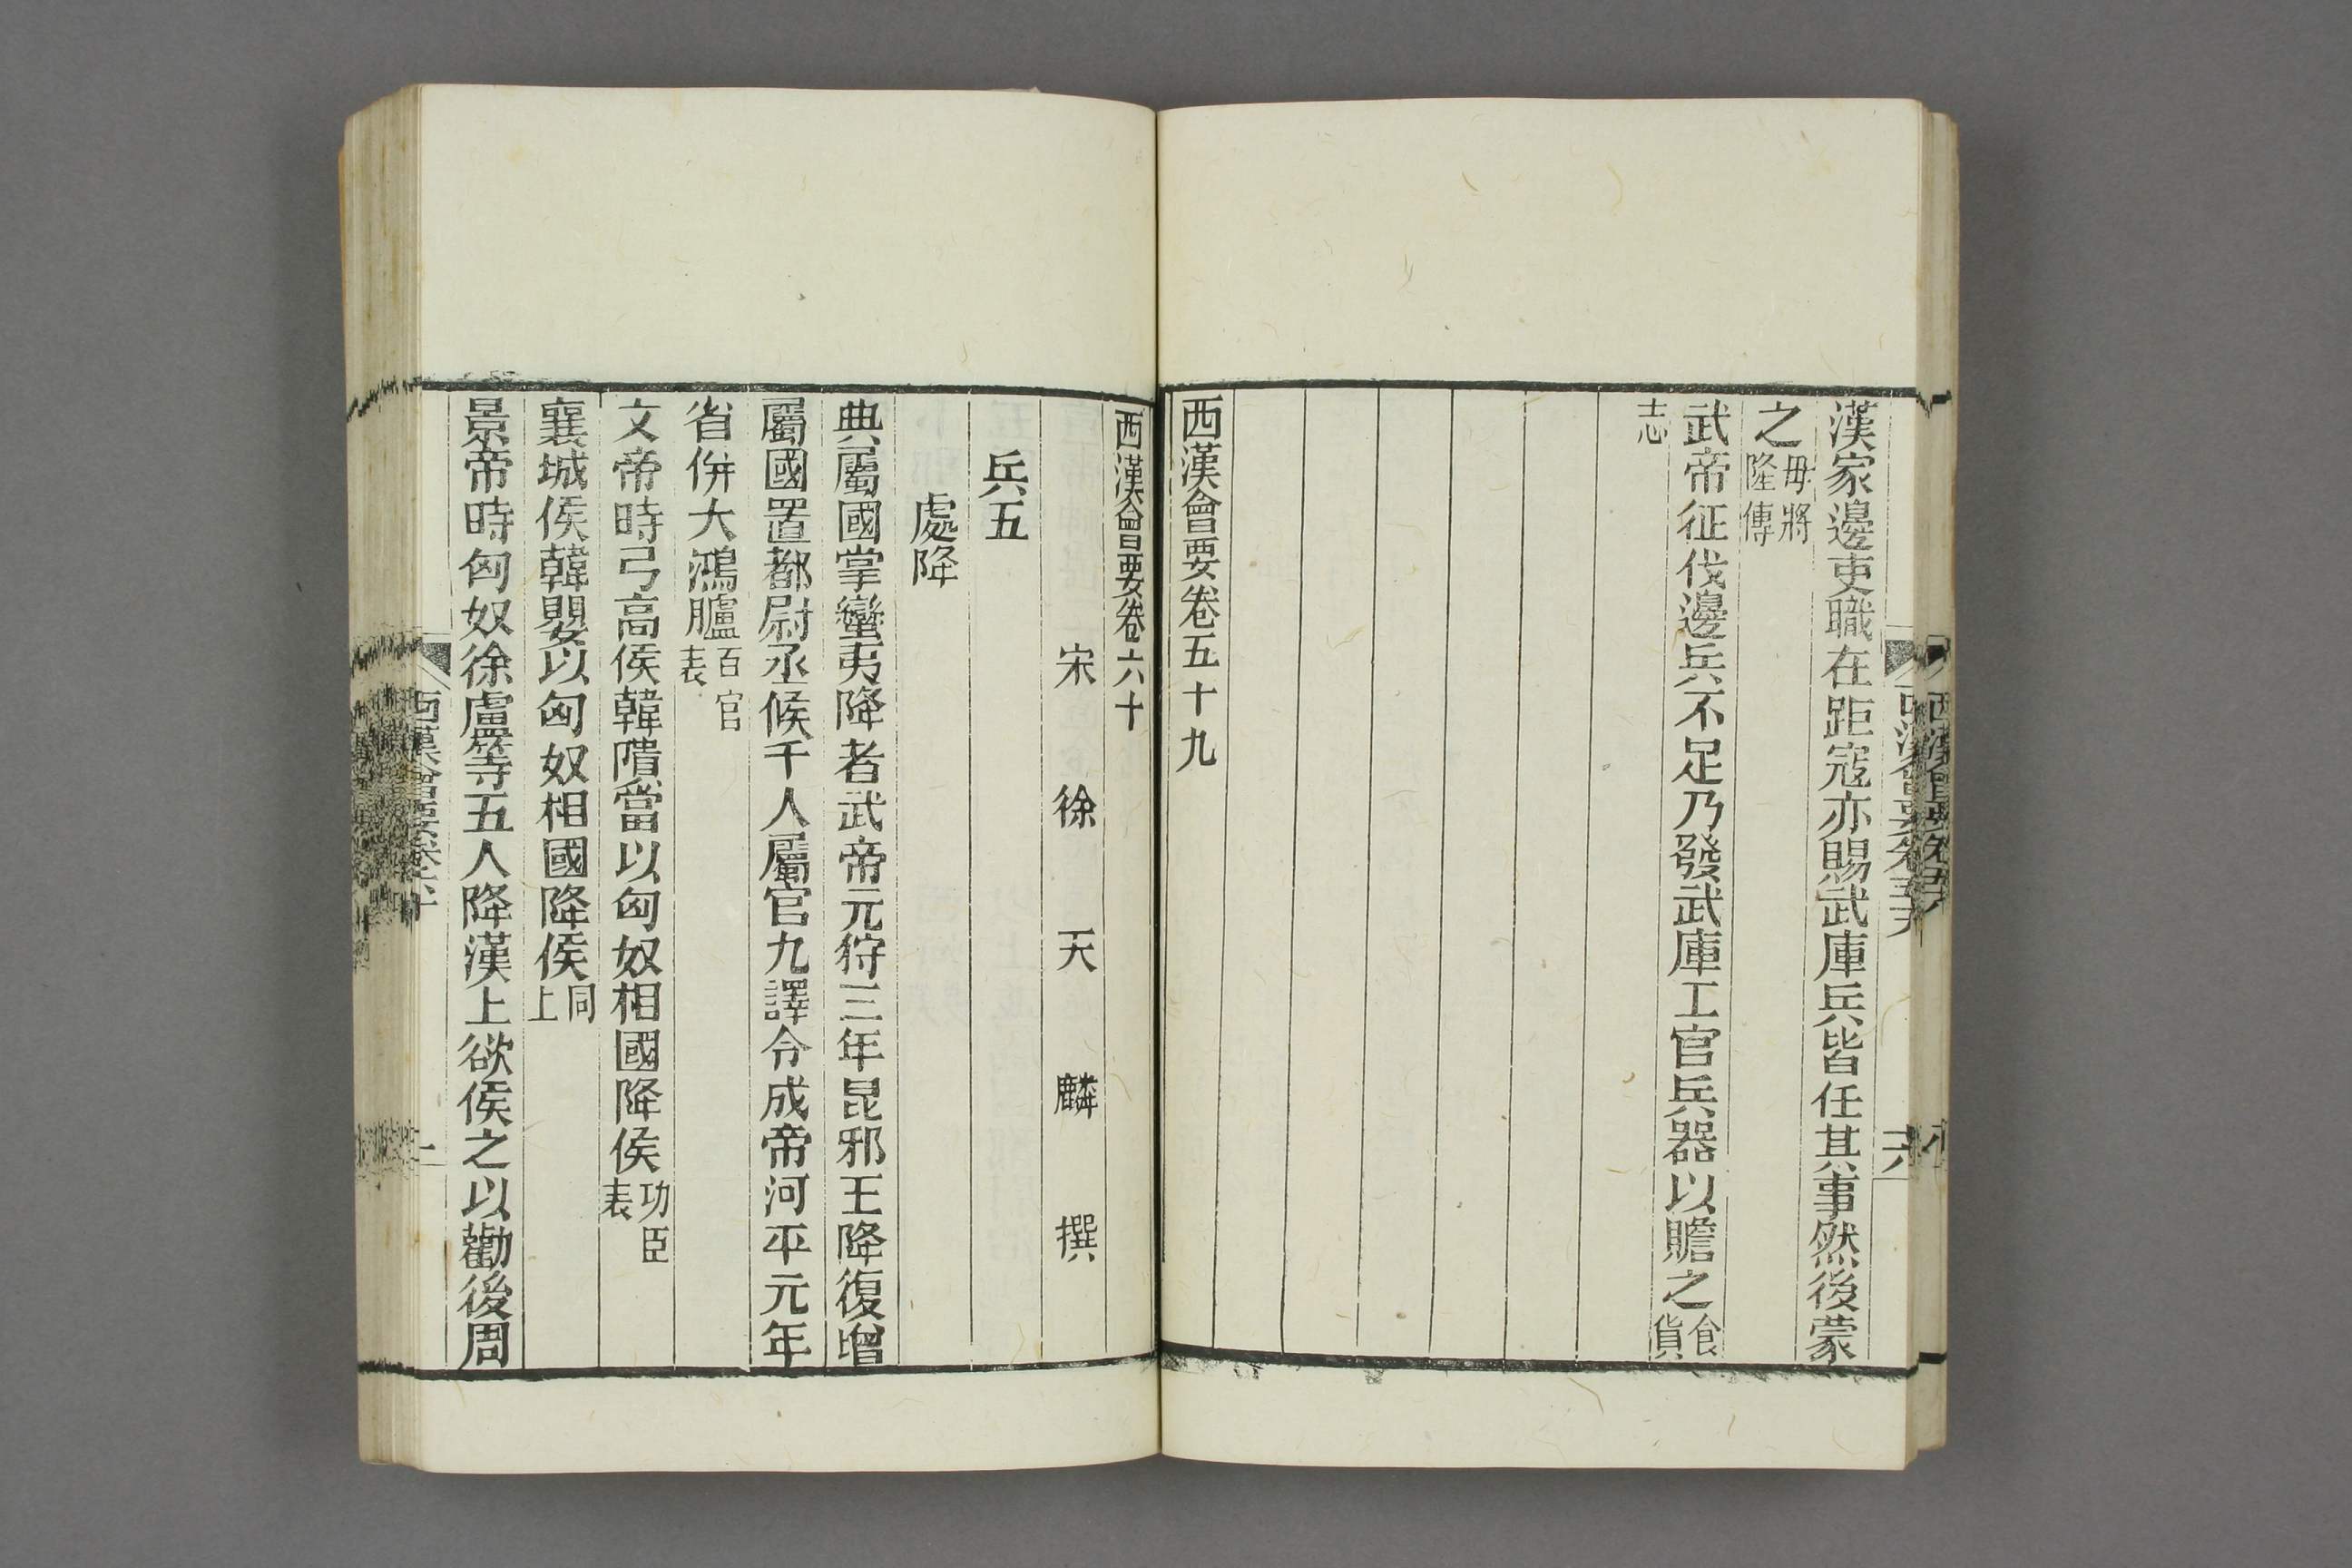 漢家邊吏職在距寇亦賜武庫兵皆任其事然後蒙
之毋將隆傳
武帝征伐邊兵不足乃發武庫工官兵器以贍之食貨
志
西漢會要卷五十九
西漢會要卷六十
宋徐天麟撰
兵五
處降
典屬國掌蠻夷降者武帝元狩三年昆邪王降復增
屬國置都尉丞候千人屬官九譯令成帝河平元年
省併大鴻臚百官表
文帝時弓高侯韓隤當以匈奴相國降侯功臣表
襄城侯韓嬰以匈奴相國降侯同上
景帝時匈奴徐盧等五人降漢上欲侯之以勸後周